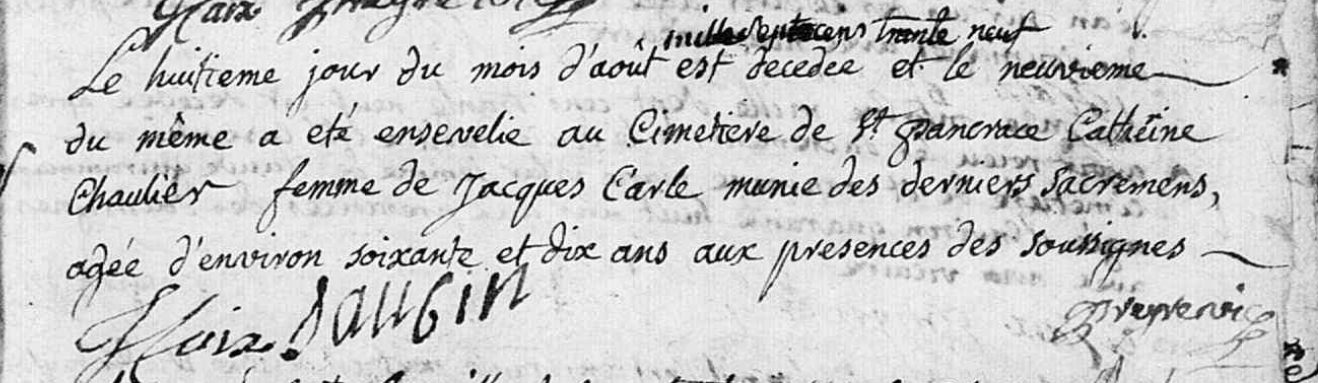 mille sept cens trante neuf
Le huitieme jour du mois d'août est decedée et le neuvieme
du même a eté ensevelie au Cimetiere de St pancrace Catherine
Chaulier femme de Jacques Carle munie des derniers sacremens,
agée d'environ soixante et dix ans aux presences des soussignes
Daubin